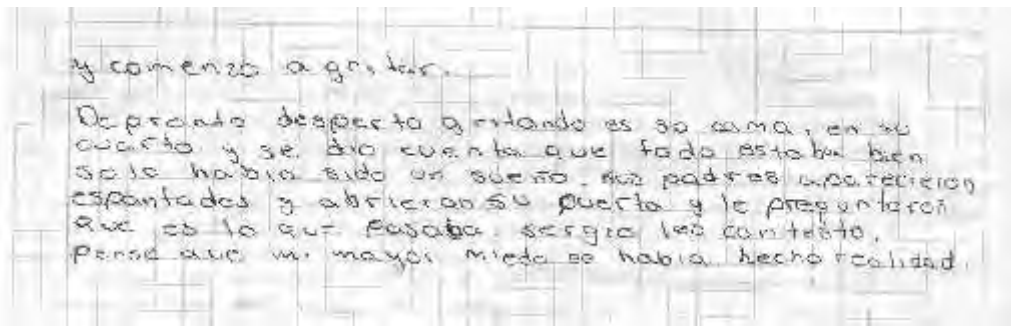 y comenzo a gritar.
De pronto desperto gritando es so cama, en su
cuarto y se dio cuenta que todo estaba bien
solo habia sido un sueño. sus padres aparecieron
espantados y abrieron su puerta y le preguntaron
que es lo que pasaba. sergio les contesto.
Pense que mi mayor miedo se habia hecho realidad.